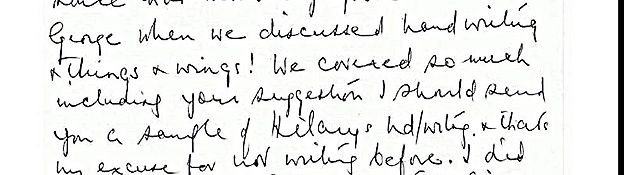 George when we discussed handwriting
& things & wings! We covered so much
including your suggestion I should send
you a sample of Hilary's hd/writg. & that's
my excuse for not writing before. I did